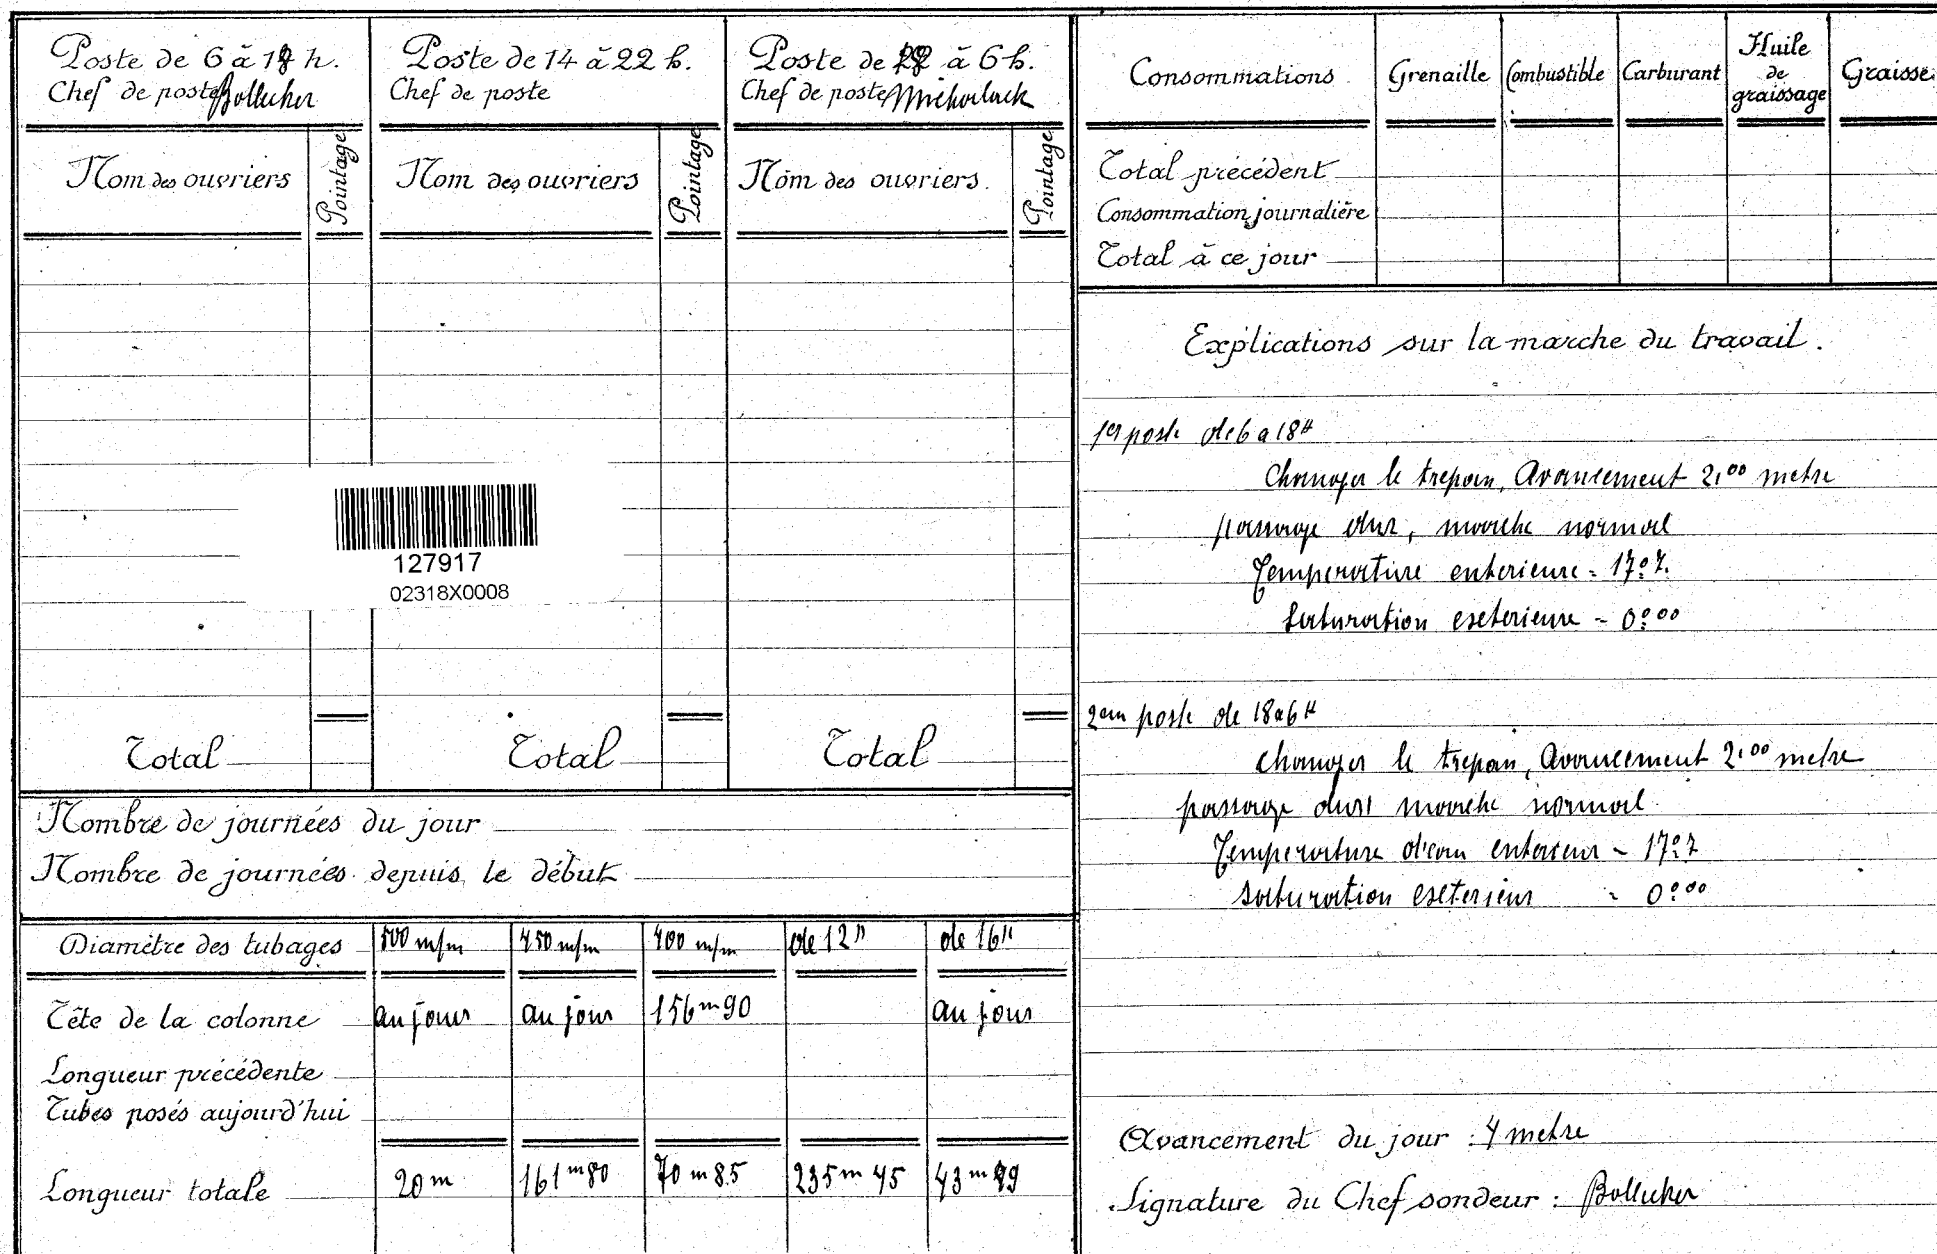 Poste de 6 à 18 h.
Chef de poste Bollecker
Nom des ouvriers
Pointage
Total
Poste de 14 à 22 h.
Chef de poste
Nom des ouvriers
Pointage
Total
Poste de à 6 h.
Chef de poste
Nom des ouvriers.
Pointage
Total
127917
02318X0008
Nombre de journées du jour
Nombre de journées depuis le début
Diamètre des tubages 500 m/m 450 m/m 400 m/m de 12" de 16"
Tête de la colonne au jour au jour 156m90 au jour
Longueur précédente
Tubes posés aujourd'hui
Longueur totale 20m 161m80 70m85 235m45 43m
Consommations Grenaille Combustible Carburant Huile de graissage Graisse
Total précédent
Consommation journalière
Total à ce jour
Explications sur la marche du travail.
1er poste de 6 a 18H
Changer le trepan, Avancement 2,00 metre
passage dur, marche normal
Temperature enterieure = 17°7.
Saturation exeterieure - 0°00
2em poste de 18 a 6H
changer le trepan, Avancement 2,00 metre
passage dur marche normal
Temperature d'eau enterieur - 17°7
Saturation exeterieur - 0°00
Avancement du jour : 4 metre
Signature du Chef sondeur : Bollecker